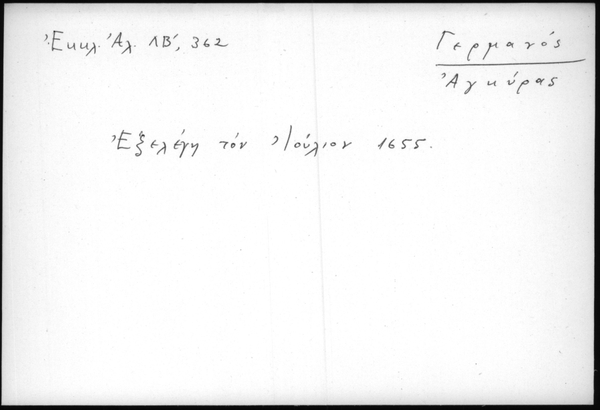 Ἐκκλ. Ἀλ. ΛΒ', 362
Γερμανός
Ἀγκύρας
Ἐξελέγη τόν Ἰούλιον 1655.